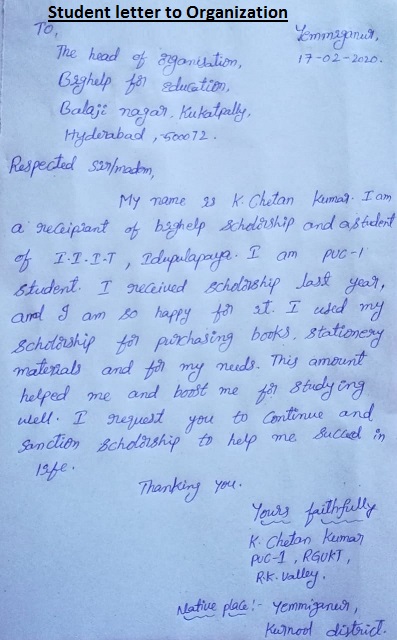 Student letter to Organization
To,
Yemmiganur,
17-02-2020.
The head of organisation,
Bighelp for education,
Balaji nagar, Kukatpally,
Hyderabad, 500072.
Respected sir/madam,
My name is K. Chetan Kumar. I am
a receipiant of bighelp scholorship and a student
of I.I.I.T, Idupulapaya. I am PUC-1
student. I received scholorship last year,
and I am so happy for it. I used my
scholorship for purchasing books, stationery
materials and for my needs. This amount
helped me and boost me for studying
well. I request you to continue and
sanction scholorship to help me succed in
life.
Thanking you.
Yours faithfully
K. Chetan Kumar
PUC-1, RGUKT,
R.K. valley.
Native place:- Yemmiganur,
Kurnool district.